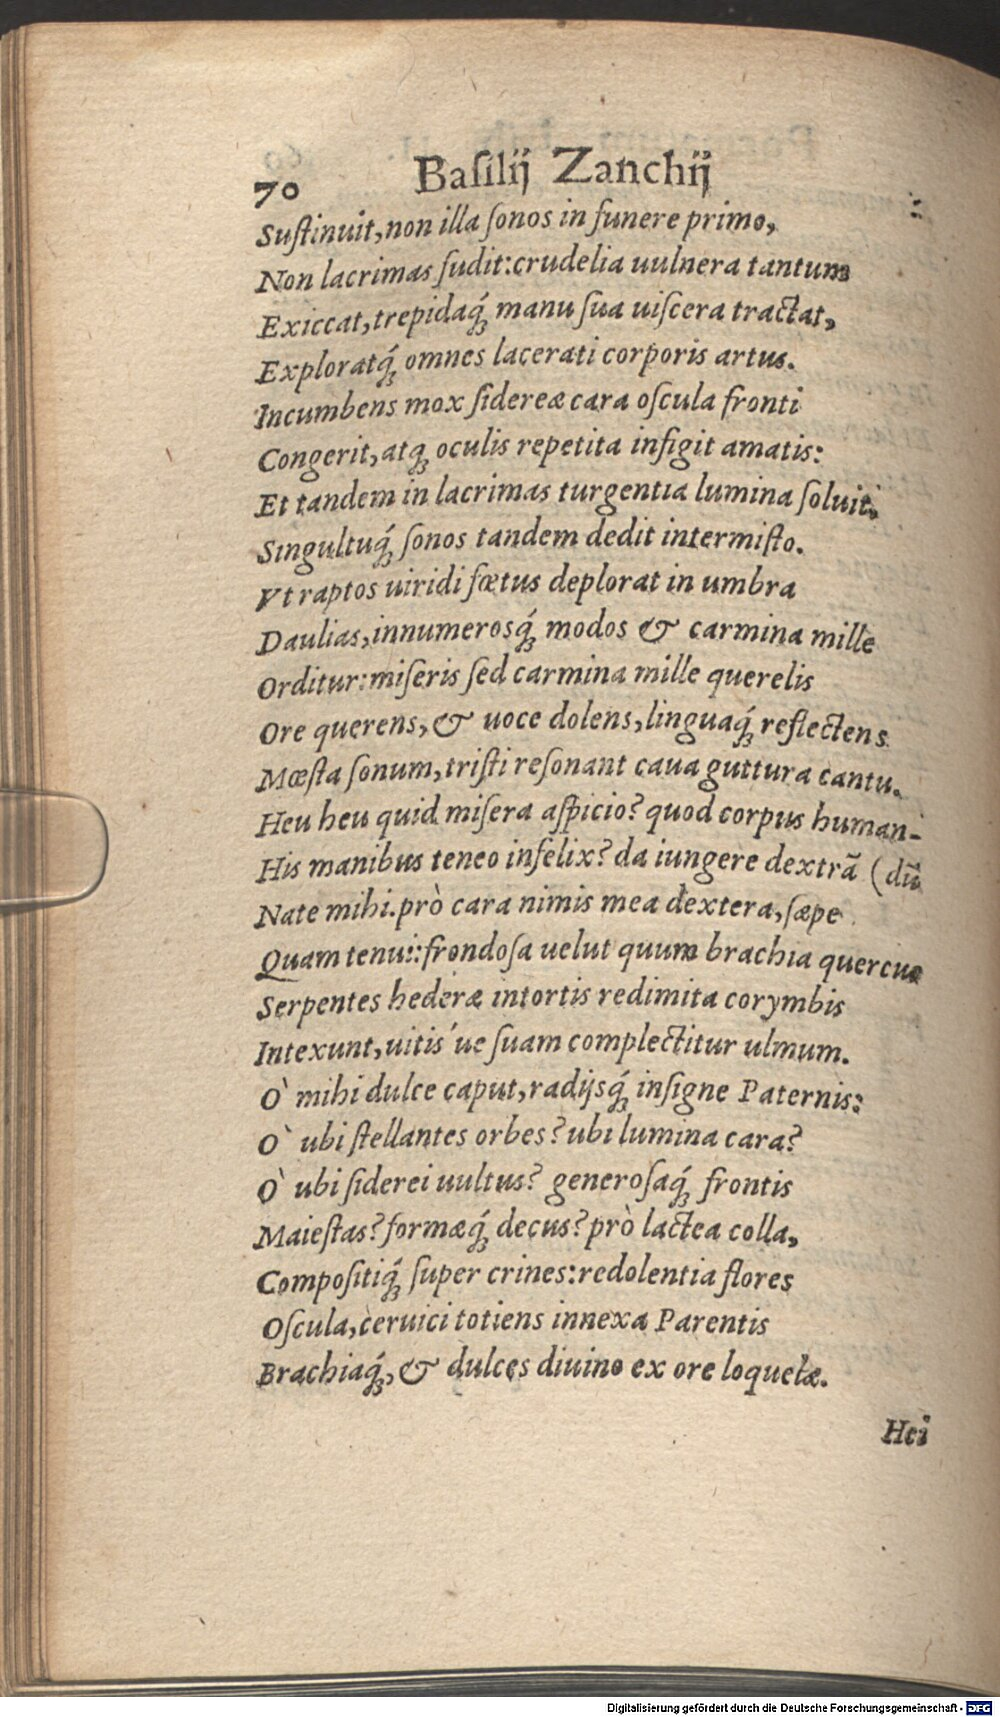 70 Baſilij Zanchij
Suſtinuit, non illa ſonos in funere primo,
Non lacrimas fudit: crudelia uulnera tantum
Exiccat, trepidaq́ꝫ manu ſua uiſcera tractat,
Exploratq́ꝫ omnes lacerati corporis artus.
Incumbens mox ſidereæ cara oſcula fronti
Congerit, atqꝫ oculis repetita infigit amatis:
Et tandem in lacrimas turgentia lumina ſoluit,
Singultuq́ꝫ ſonos tandem dedit intermiſto.
Vt raptos uiridi fœtus deplorat in umbra
Daulias, innumerosq́ꝫ modos & carmina mille
Orditur: miſeris ſed carmina mille querelis
Ore querens, & uoce dolens, linguaq́ꝫ reflectens
Mœſta ſonum, triſti reſonant caua guttura cantu.
Heu heu quid miſera aſpicio? quod corpus human-
His manibus teneo infelix? da iungere dextrã (dũ
Nate mihi. prò cara nimis mea dextera, ſæpe
Quam tenui: frondoſa uelut quum brachia quercus
Serpentes hederæ intortis redimita corymbis
Intexunt, uitis´ue ſuam complectitur ulmum.
O` mihi dulce caput, radijsq́ꝫ inſigne Paternis:
O` ubi ſtellantes orbes? ubi lumina cara?
O` ubi ſiderei uultus? generoſaq́ꝫ frontis
Maieſtas? formæq́ꝫ decus? prò lactea colla,
Compoſitiq́ꝫ ſuper crines: redolentia flores
Oſcula, ceruici totiens innexa Parentis
Brachiaq́ꝫ, & dulces diuino ex ore loquelæ.
Hei
Digitalisierung gefördert durch die Deutsche Forschungsgemeinschaft - DFG